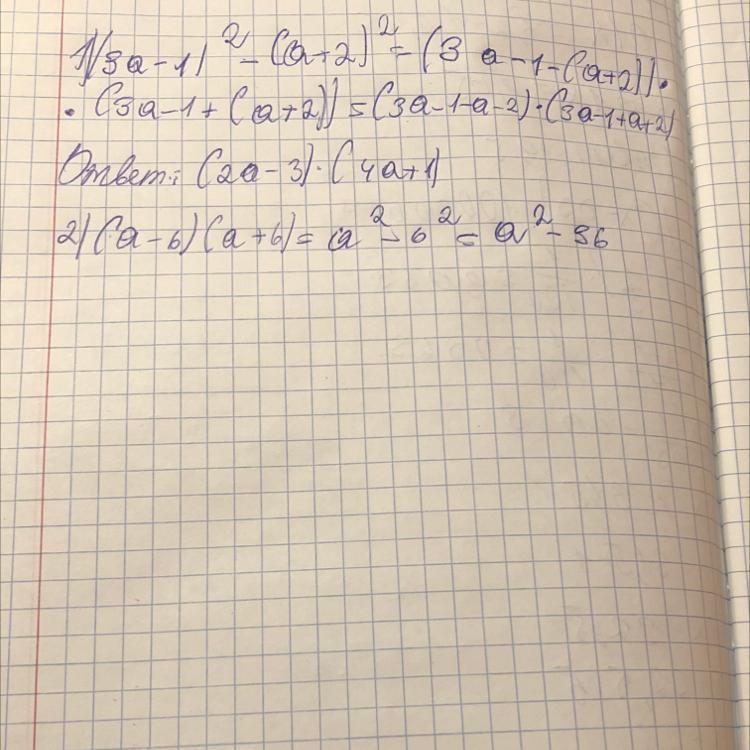 1)(3a-1)² - (a+2)² = (3 a-1-(a+2))·
·(3a-1+(a+2)) = (3a-1-a-2)·(3a-1+a+2)
Ответ: (2a-3)·(4a+1)
2)(a-6)(a+6) = a² - 6² = a² - 36